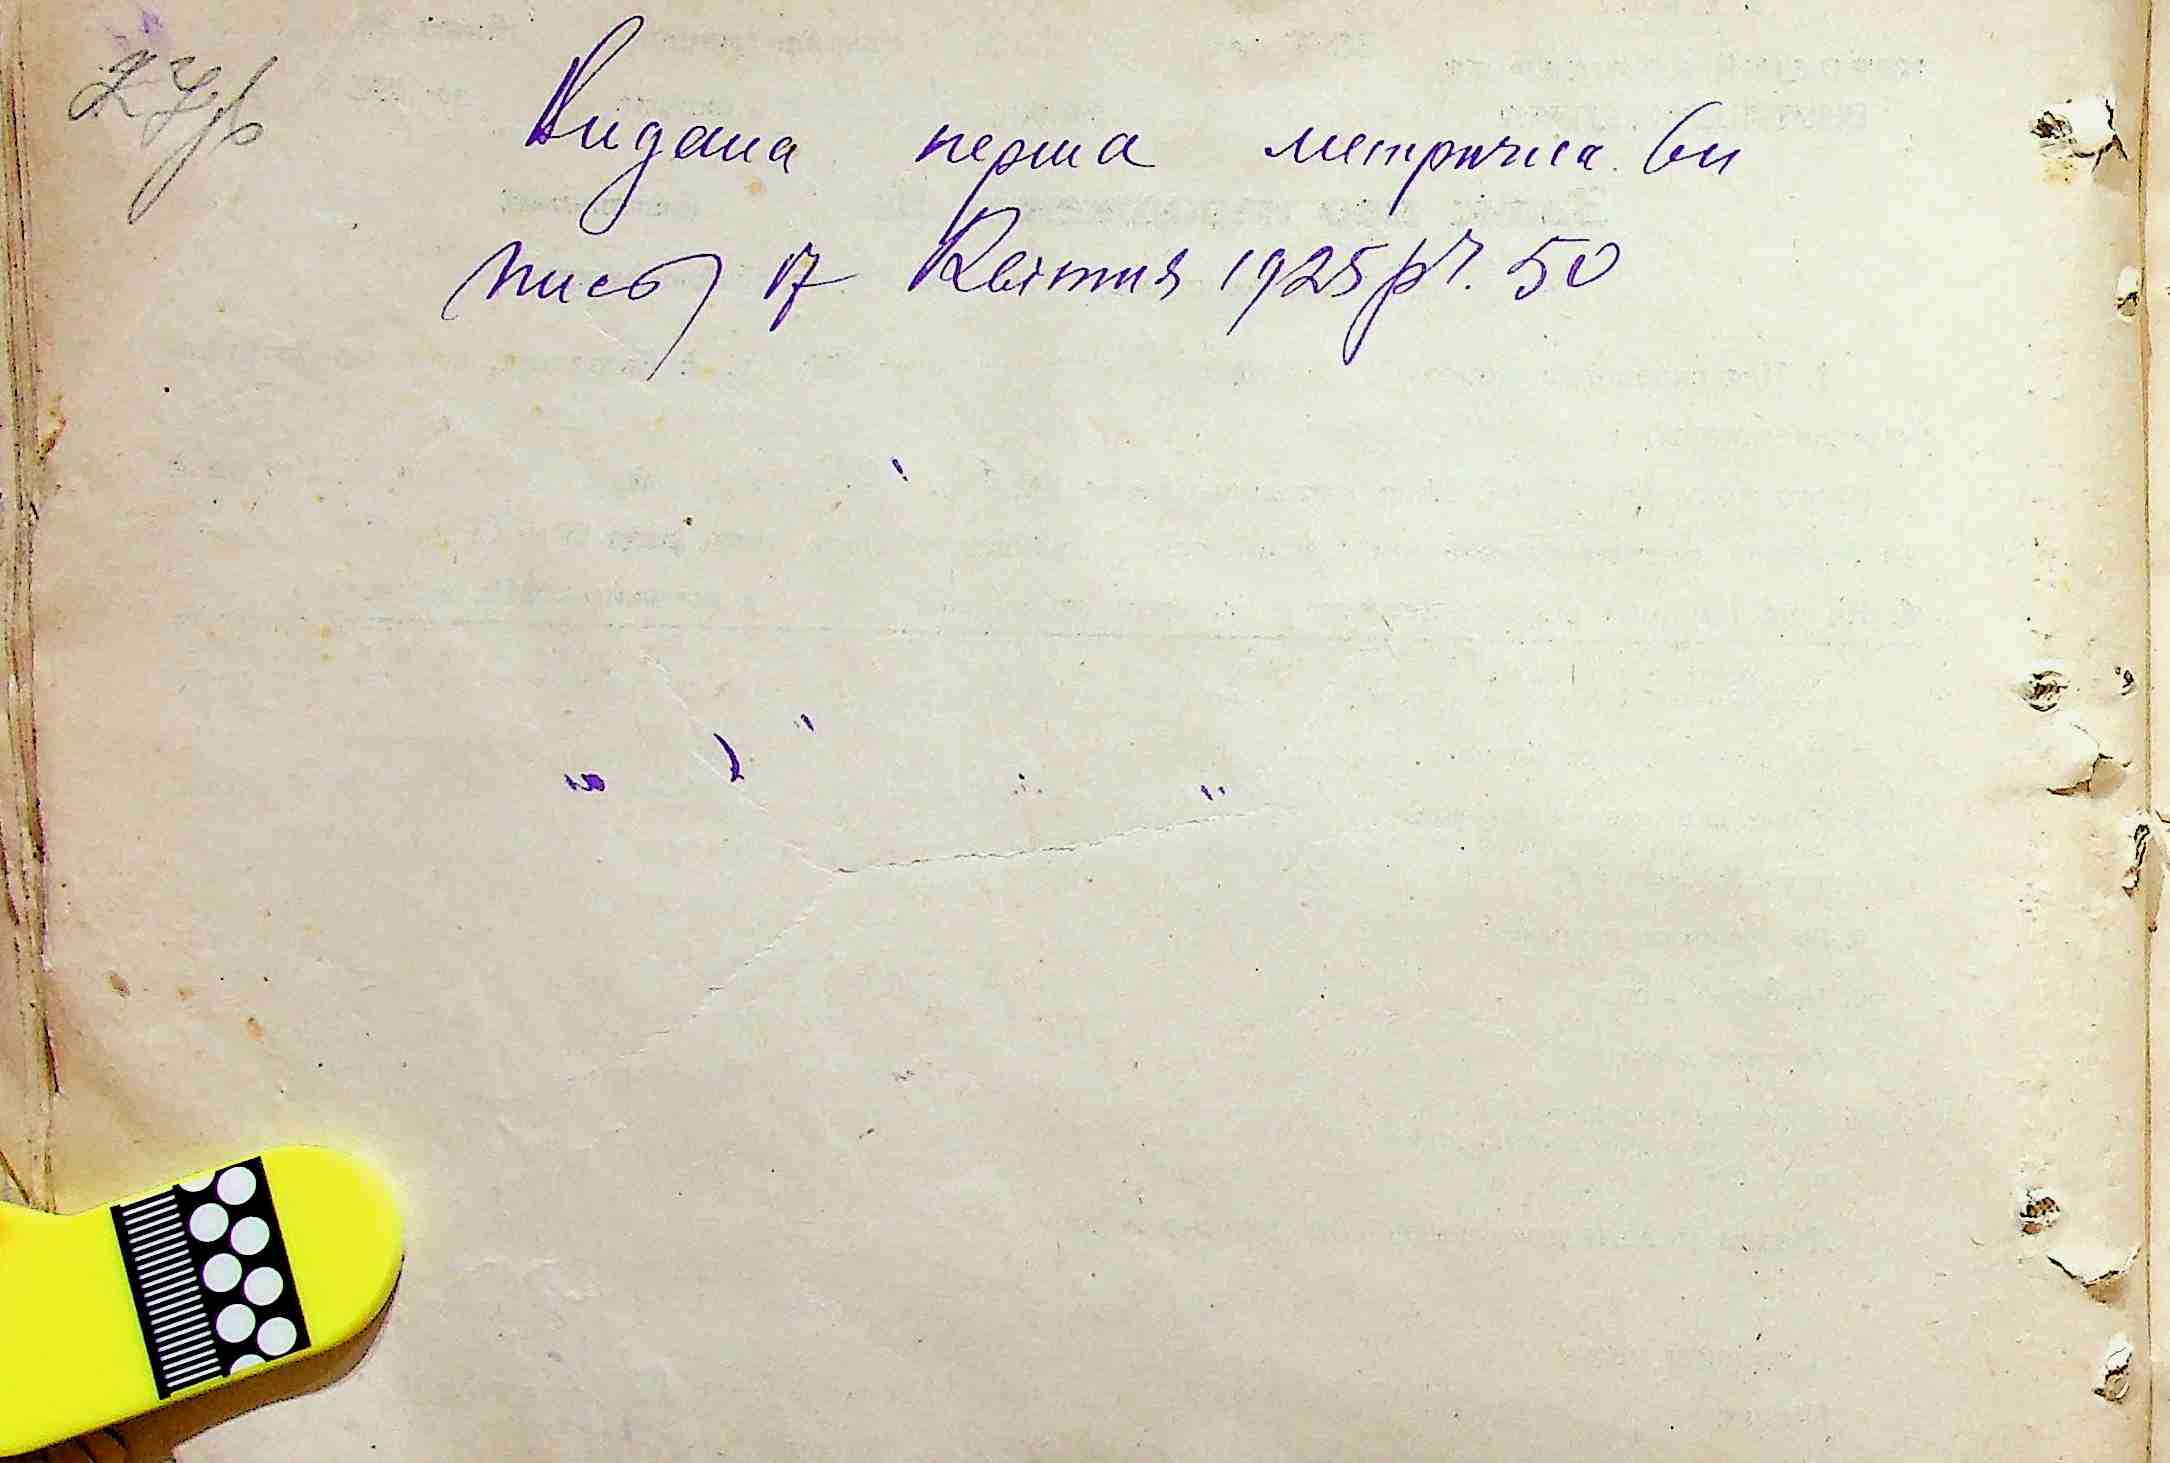 Видана перша метрична ви
пись 17 Квітня 1925 р Ч. 50